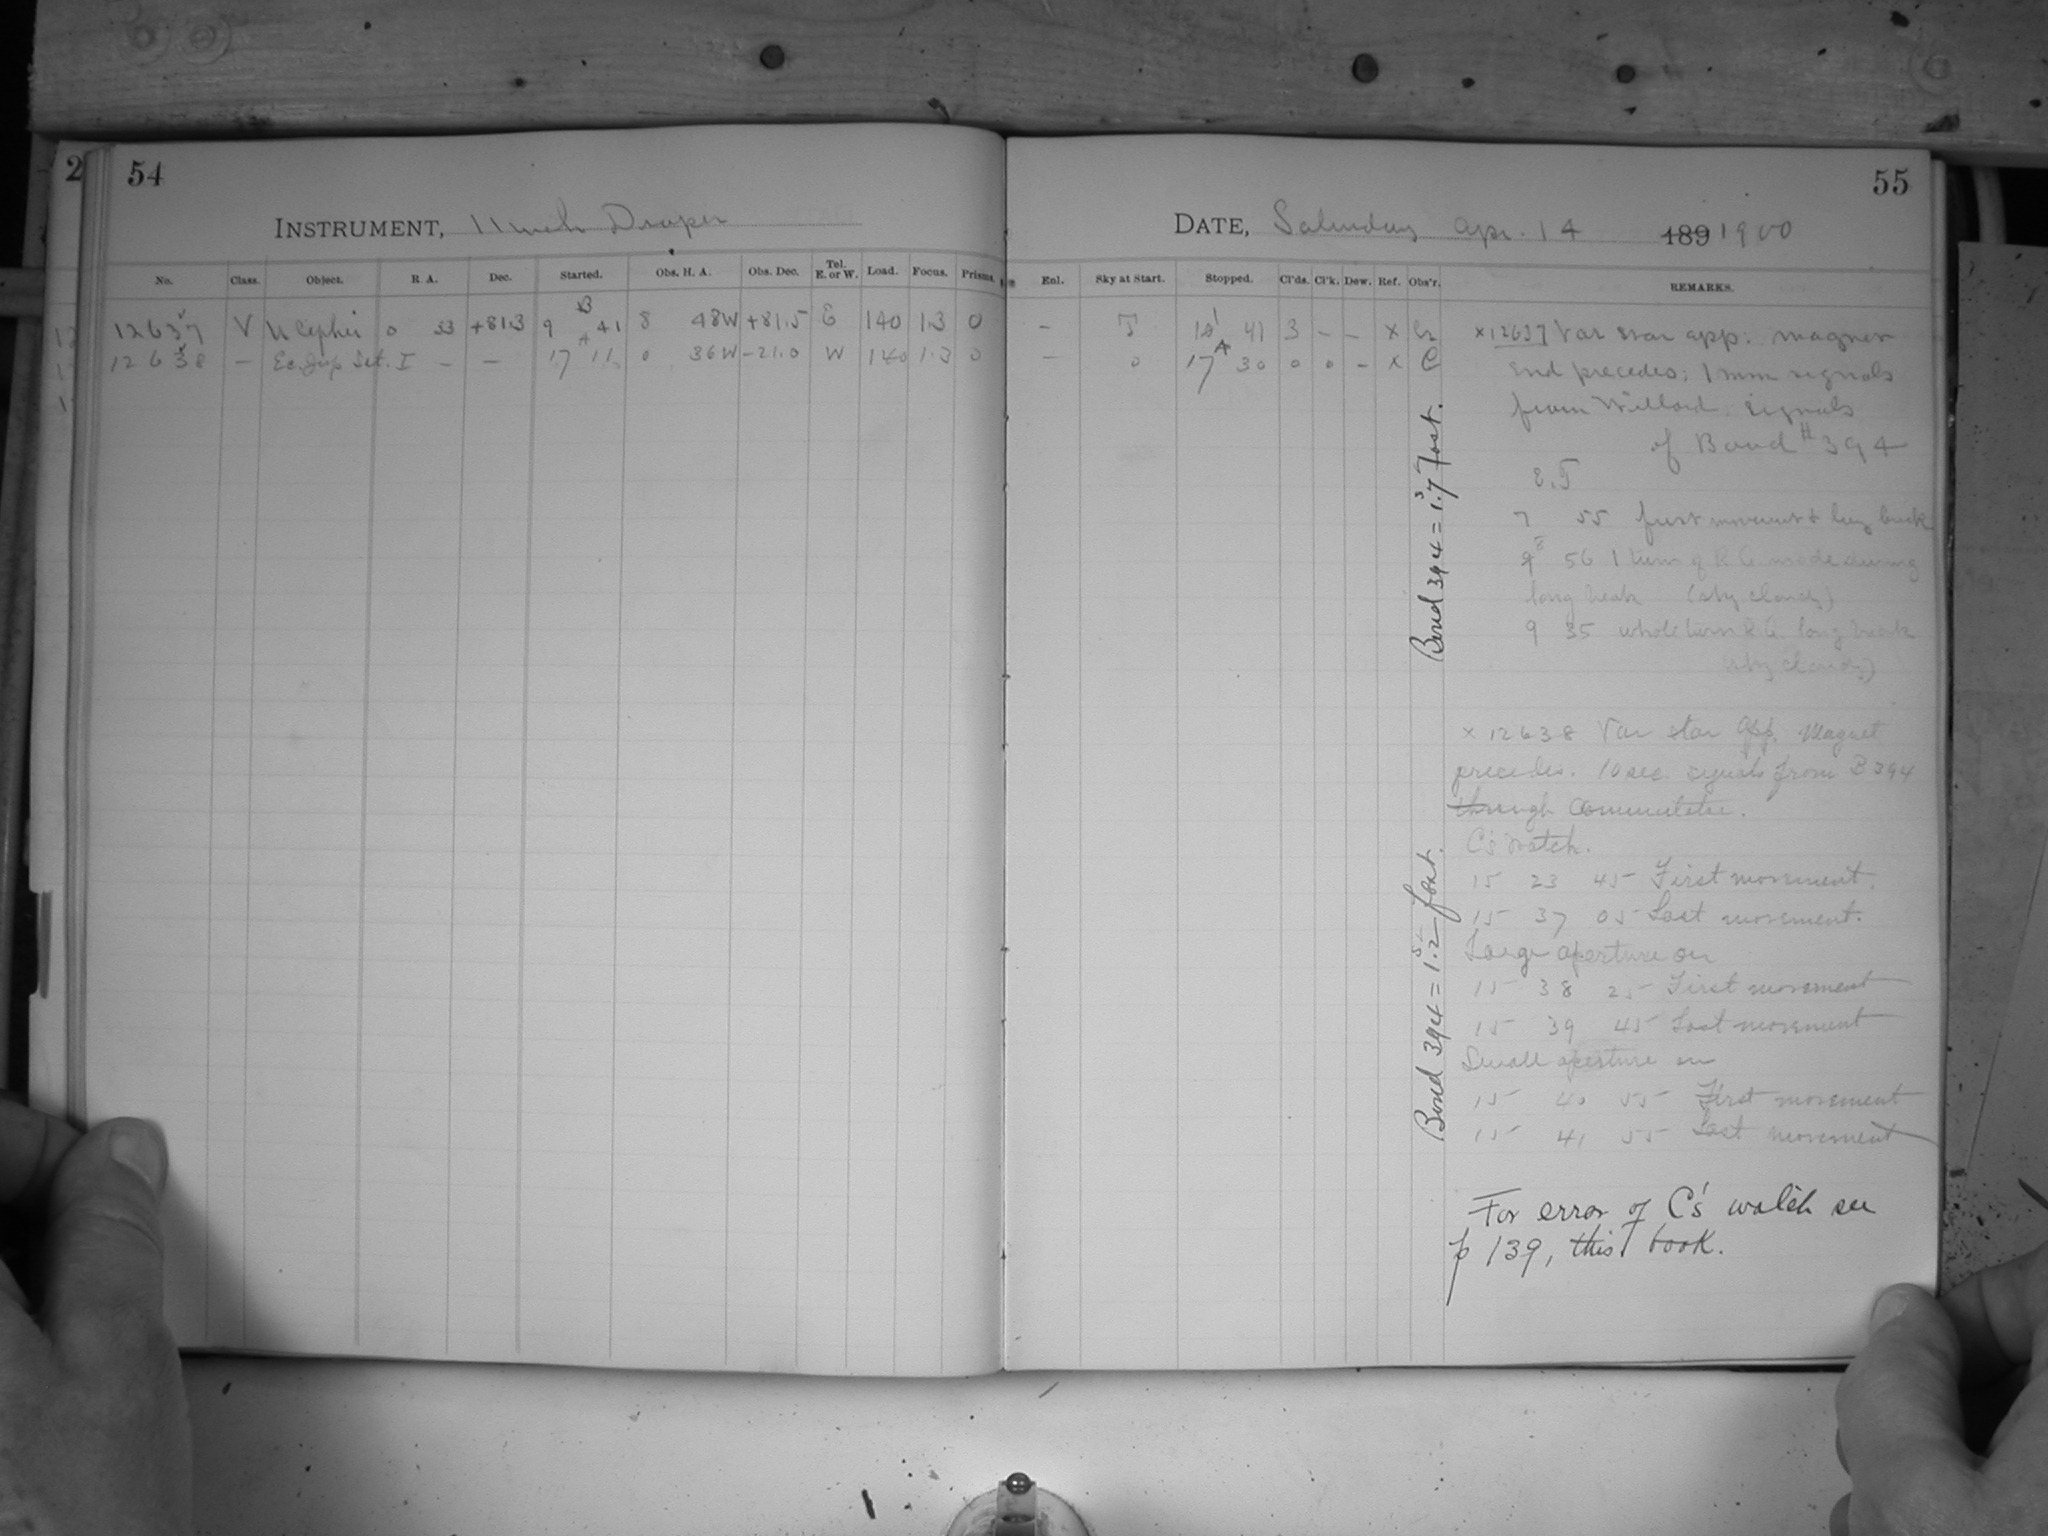 2
54
INSTRUMENT, 11 inch Draper
No. Class. Object. R. A. Dec. Started. Obs. H. A. Obs. Dec. Tel. E. or W. Load. Focus. Prisms.
12637 V U Cephei 0 53 +81.3 9 41 8 48W +81.5 E 140 1.3 0
12638 — Ec. Jup Sat. I — — 17 11 0 36W -21.0 W 140 1.3 0
55
DATE, Saturday Apr. 14 189 1900
Enl. Sky at Start. Stopped. Cl'ds. Cl'k. Dew. Ref. Obs'r. REMARKS.
— 41 3 — — x
— 0 17 30 0 0 – x C
x 12637 Var star app. magnet
end precedes; 1 mm signals
from Willard. signals
of Bond #394
E.T
7 55 first movement & long break
56 1 turn of R A made during
long break (sky cloudy)
9 35 whole turn R A long break
(sky cloudy)
x 12638 Var star app. Magnet
precedes. 10 sec. signals from B 394
through commutator.
C's watch.
15 23 45 First movement.
15 37 05 Last movement.
Large aperture on
15 38 25 First movement
15 39 45 Last movement
Small aperture on
15 40 55 First movement
15 41 55 Last movement
For error of C's watch see
p 139, this book.
Bond 394 = 1.7 fast.
Bond 394 = 1.2 fast.